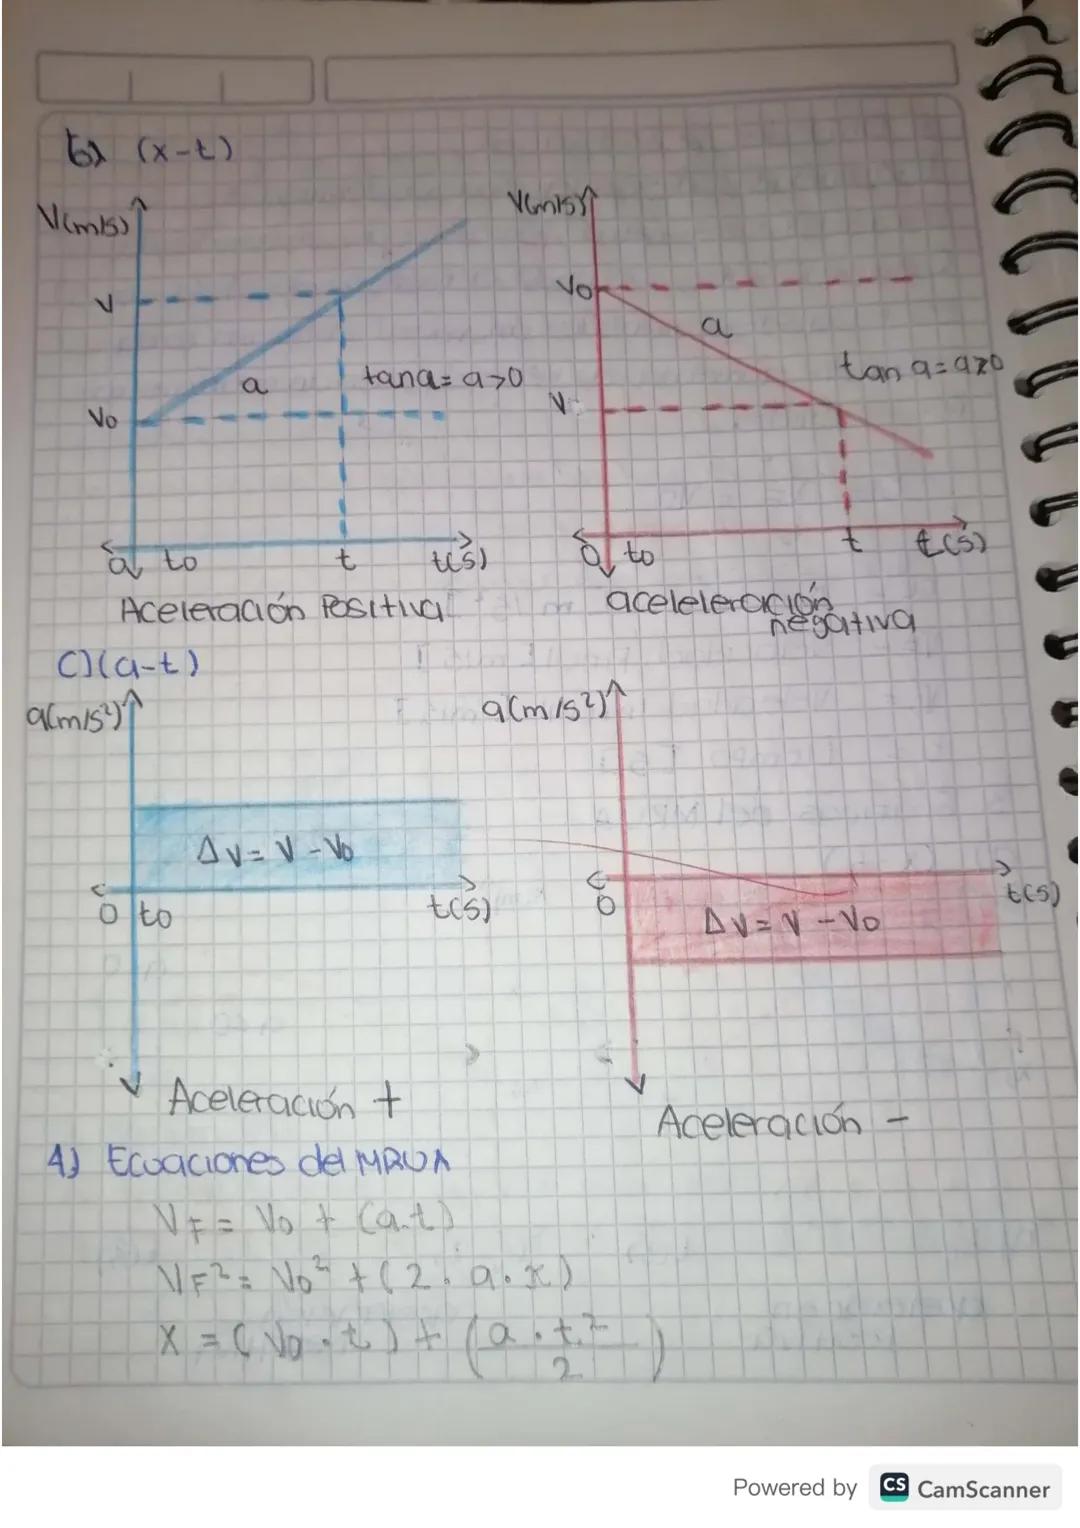 b) (x-t)
V(m/s)
V
a
tana= a>0
Vo
0 to t t(s)
Aceleración Positiva
V(m/s)
Vo
a
V
0 to t t(s)
aceleleración
negativa
C)(a-t)
a(m/s²)
ΔV= V-Vo
0 to t(s)
Aceleración +
a(m/s²)
0 t(s)
ΔV= V-Vo
Aceleración -
4) Ecuaciones del MRUA
VF = Vo + (a.t)
VF² = Vo² + (2. a. x)
X = (Vo . t) + (a . t² / 2)
Powered by CS CamScanner